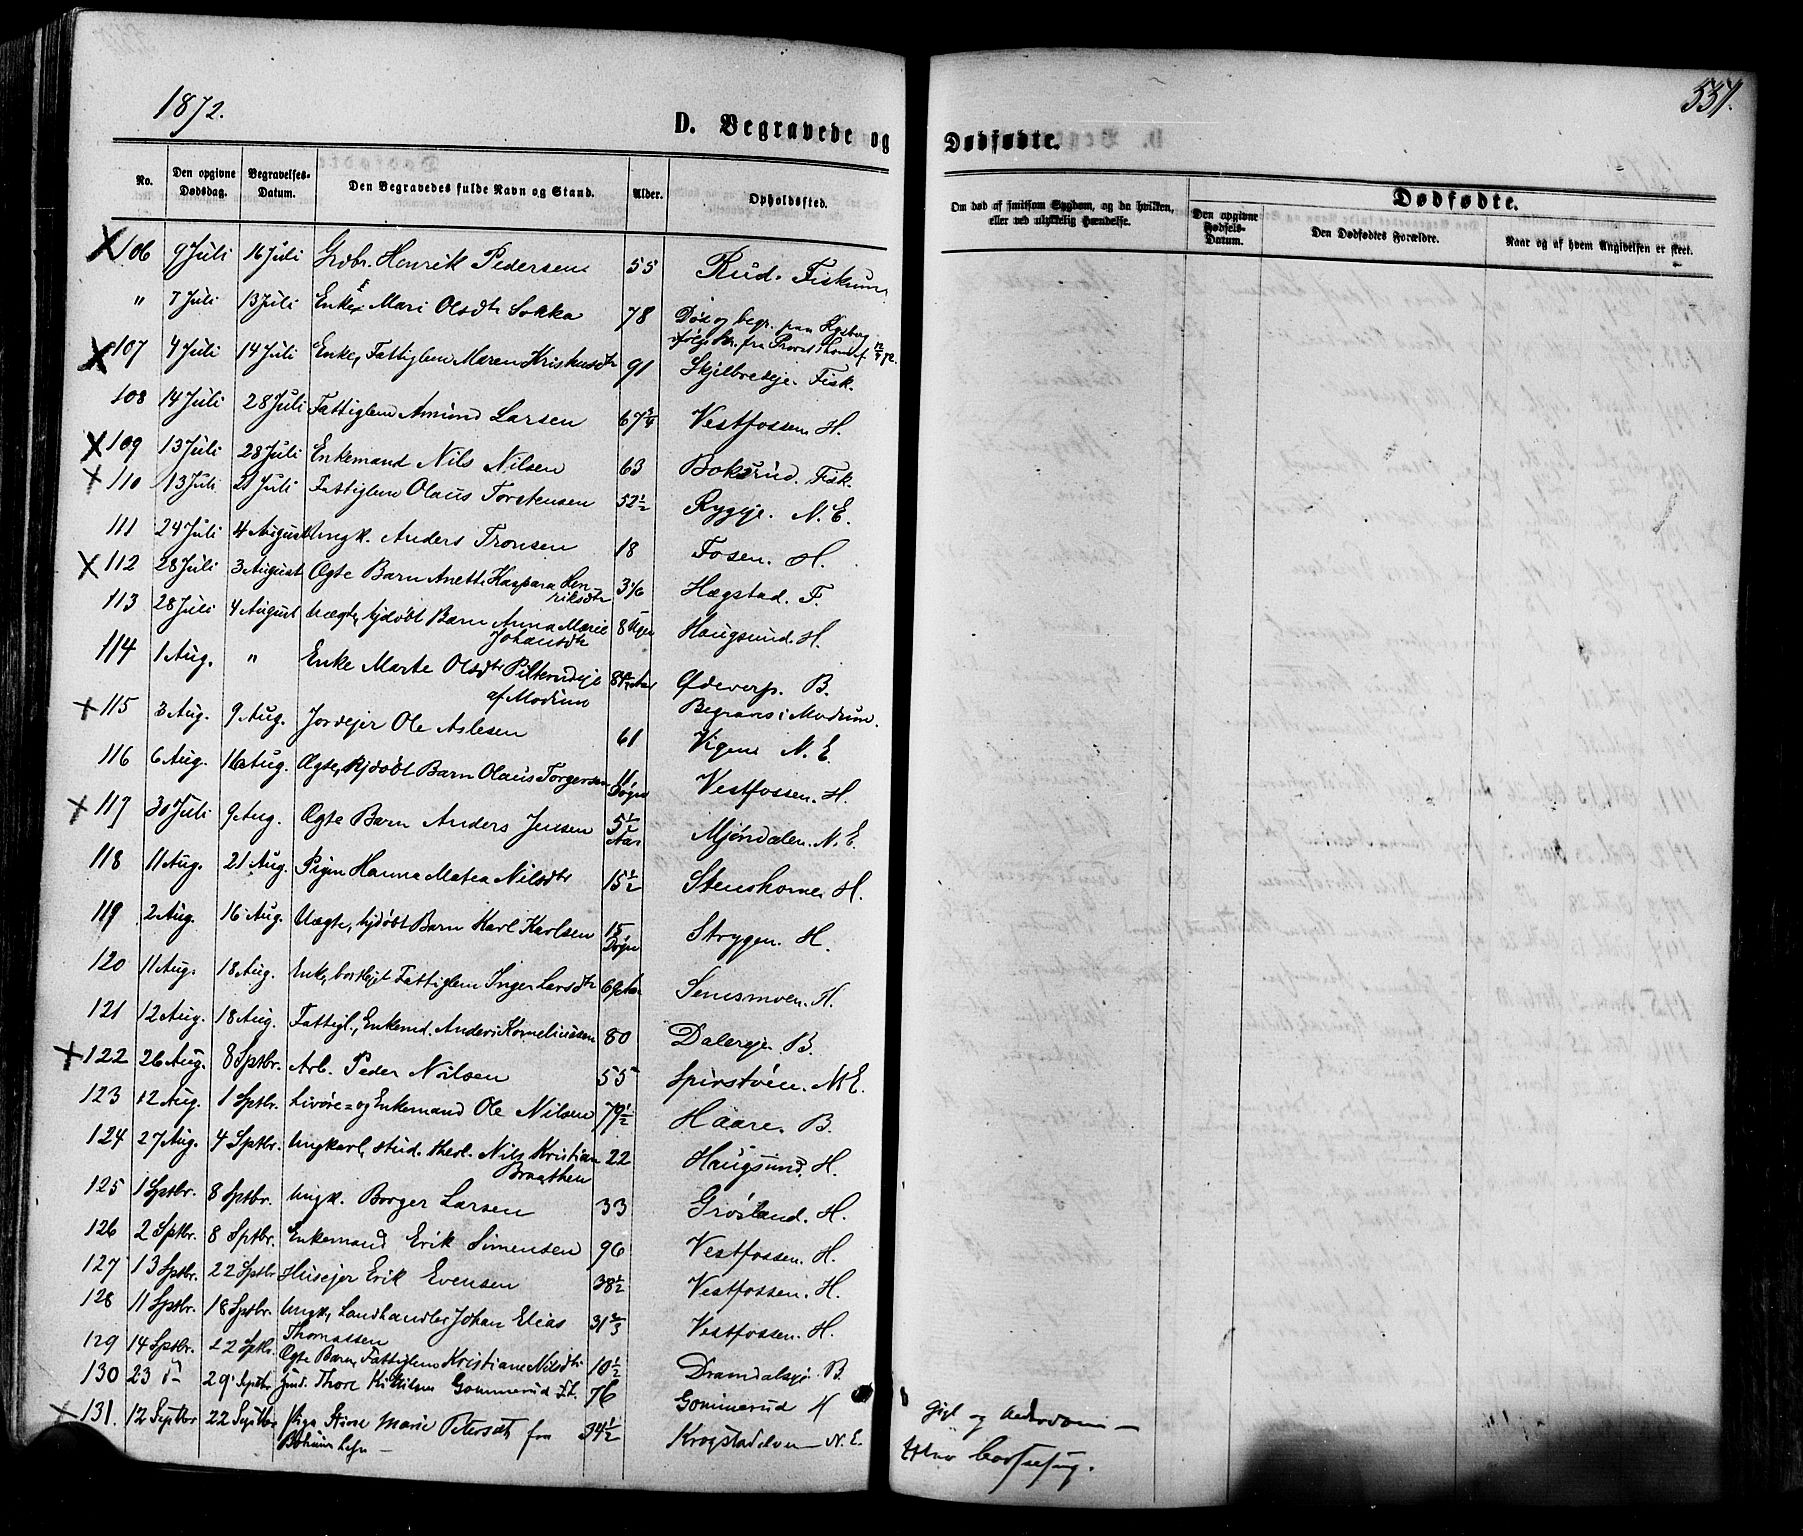 1872.
557.
D. Begravede og Dødfødte.
No. Den opgivne Dødsdag. Begravelses-Datum. Den Begravedes fulde Navn og Stand. Alder. Opholdssted. Om død af smitsom Sygdom, og da hvilken, eller ved ulykkelig Hændelse. Dødfødte. Den opgivne Fødsels-Datum. Den Dødfødtes Forældre. Naar og af hvem Angivelsen er skeet.
X 106 9 Juli 16 Juli Grdbr. Henrik Pedersen 55 Rud. Fiskum
" 7 Juli 13 Juli Enke Mari Olsdtr Sokka 78 Død og begr. paa Kgsberg
ifølge Skr. fra Provst 
X 107 4 Juli 14 Juli Enke, Fattiglem Maren Kristensdtr 91 Skjelbredeje. Fisk.
108 14 Juli 28 Juli Fattiglem Amund Larsen 67 3/4 Vestfossen. H.
X 109 13 Juli 28 Juli Enkemand Nils Nilsen 63 Boksrud. Fisk.
X 110 13 Juli 21 Juli Fattiglem Olaus Torstensen 52 1/2 Rygeje. N. E.
111 24 Juli 4 August Ungk. Anders Tronsen 18 Fosen. H.
X 112 28 Juli 3 August Ægte Barn Anette Kaspara Hen-
riksdtr 3 1/6 Hægstad. F.
113 28 Juli 4 August Uægte, hjdøbt Barn Anna Marie
Johansdtr 8 Uger Haugsund. H.
114 1 Aug. " Enke Marte Olsdtr Pilterudeje
af Modum 84 Aar Ødeverp. B.
Begraves i Modum.
X 115 3 Aug. 9 Aug. Jordejer Ole Aslesen 61 Vigen. N. E.
116 6 Aug. 16 Aug. Ægte, hjdøbt Barn Olaus Torgersen 11
Døgn Vestfossen. H.
X 117 30 Juli 9 Aug. Ægte Barn Anders Jensen 5 1/2
Aar Mjøndalen. N. E.
118 11 Aug. 21 Aug. Pigen Hanna Matea Nilsdtr 15 1/2 Stenshorne H.
119 2 Aug. 16 Aug. Uægte, hjdøbt Barn Karl Karlsen 15
Døgn Strygen. H.
120 11 Aug. 18 Aug. Enke, bortlejet Fattiglem Inger Larsdtr Semsmoen. H.
121 12 Aug. 18 Aug. Fattigl., Enkemd. Anders Korneliussen 80 Daleeje B.
X 122 26 Aug. 8 Sptbr. Arb. Peder Nilsen 55 N. E.
123 12 Aug. 1 Sptbr. Livøre= og Enkemand Ole Nilsen 79 1/2 Haare. B.
124 27 Aug. 4 Sptbr. Ungkarl, stud. theol. Nils Kristian
Braathen 22 Haugsund. H.
125 1 Sptbr. 8 Sptbr. Ungk. Borger Larsen 33 Grøsland. H.
126 2 Sptbr. 8 Sptbr. Enkemand Erik Simensen 96 Vestfossen. H.
127 13 Sptbr. 22 Sptbr Husejer Erik Evensen 38 1/2 Vestfossen. H.
128 11 Sptbr. 18 Sptbr. Ungk, Landhandler Johan Elias
Thomassen 31 2/3 Vestfossen. H.
129 14 Sptbr. 22 Sptbr. Ægte Barn, Fattiglem Kristiane Nilsdtr 10 1/2 Dramdalseje. B
130 23 29 Septbr Thore Gommerud 76 Gommerud H
X 131. 12 Septbr 22 Septbr Pige Marie Petersdt fra
34 1/2 Krogstadelven — N. E.
Gigt og